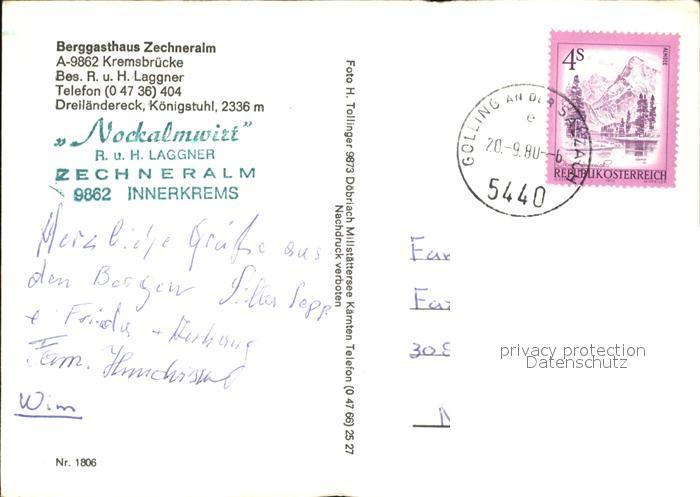 Berggasthaus Zechneralm
A-9862 Kremsbrücke
Bes. R. u. H. Laggner
Telefon (0 47 36) 404
Dreiländereck, Königstuhl, 2336 m
„Nockalmwirt"
R. u. H. LAGGNER
ZECHNERALM
9862 INNERKREMS
Herzliche Grüße aus
den Bergen Sepp
+ Frieda + Anhang
Fam.
Wim
Nr. 1806
Foto H. Tollinger 9873 Döbriach Millstättersee Kärnten Telefon (0 47 66) 25 27
Nachdruck verboten
4S
ALMSEE
REPUBLIK ÖSTERREICH
GOLLING AN DER SALZACH
e
20.-9.80--6
5440
Fa
308
privacy protection
Datenschutz